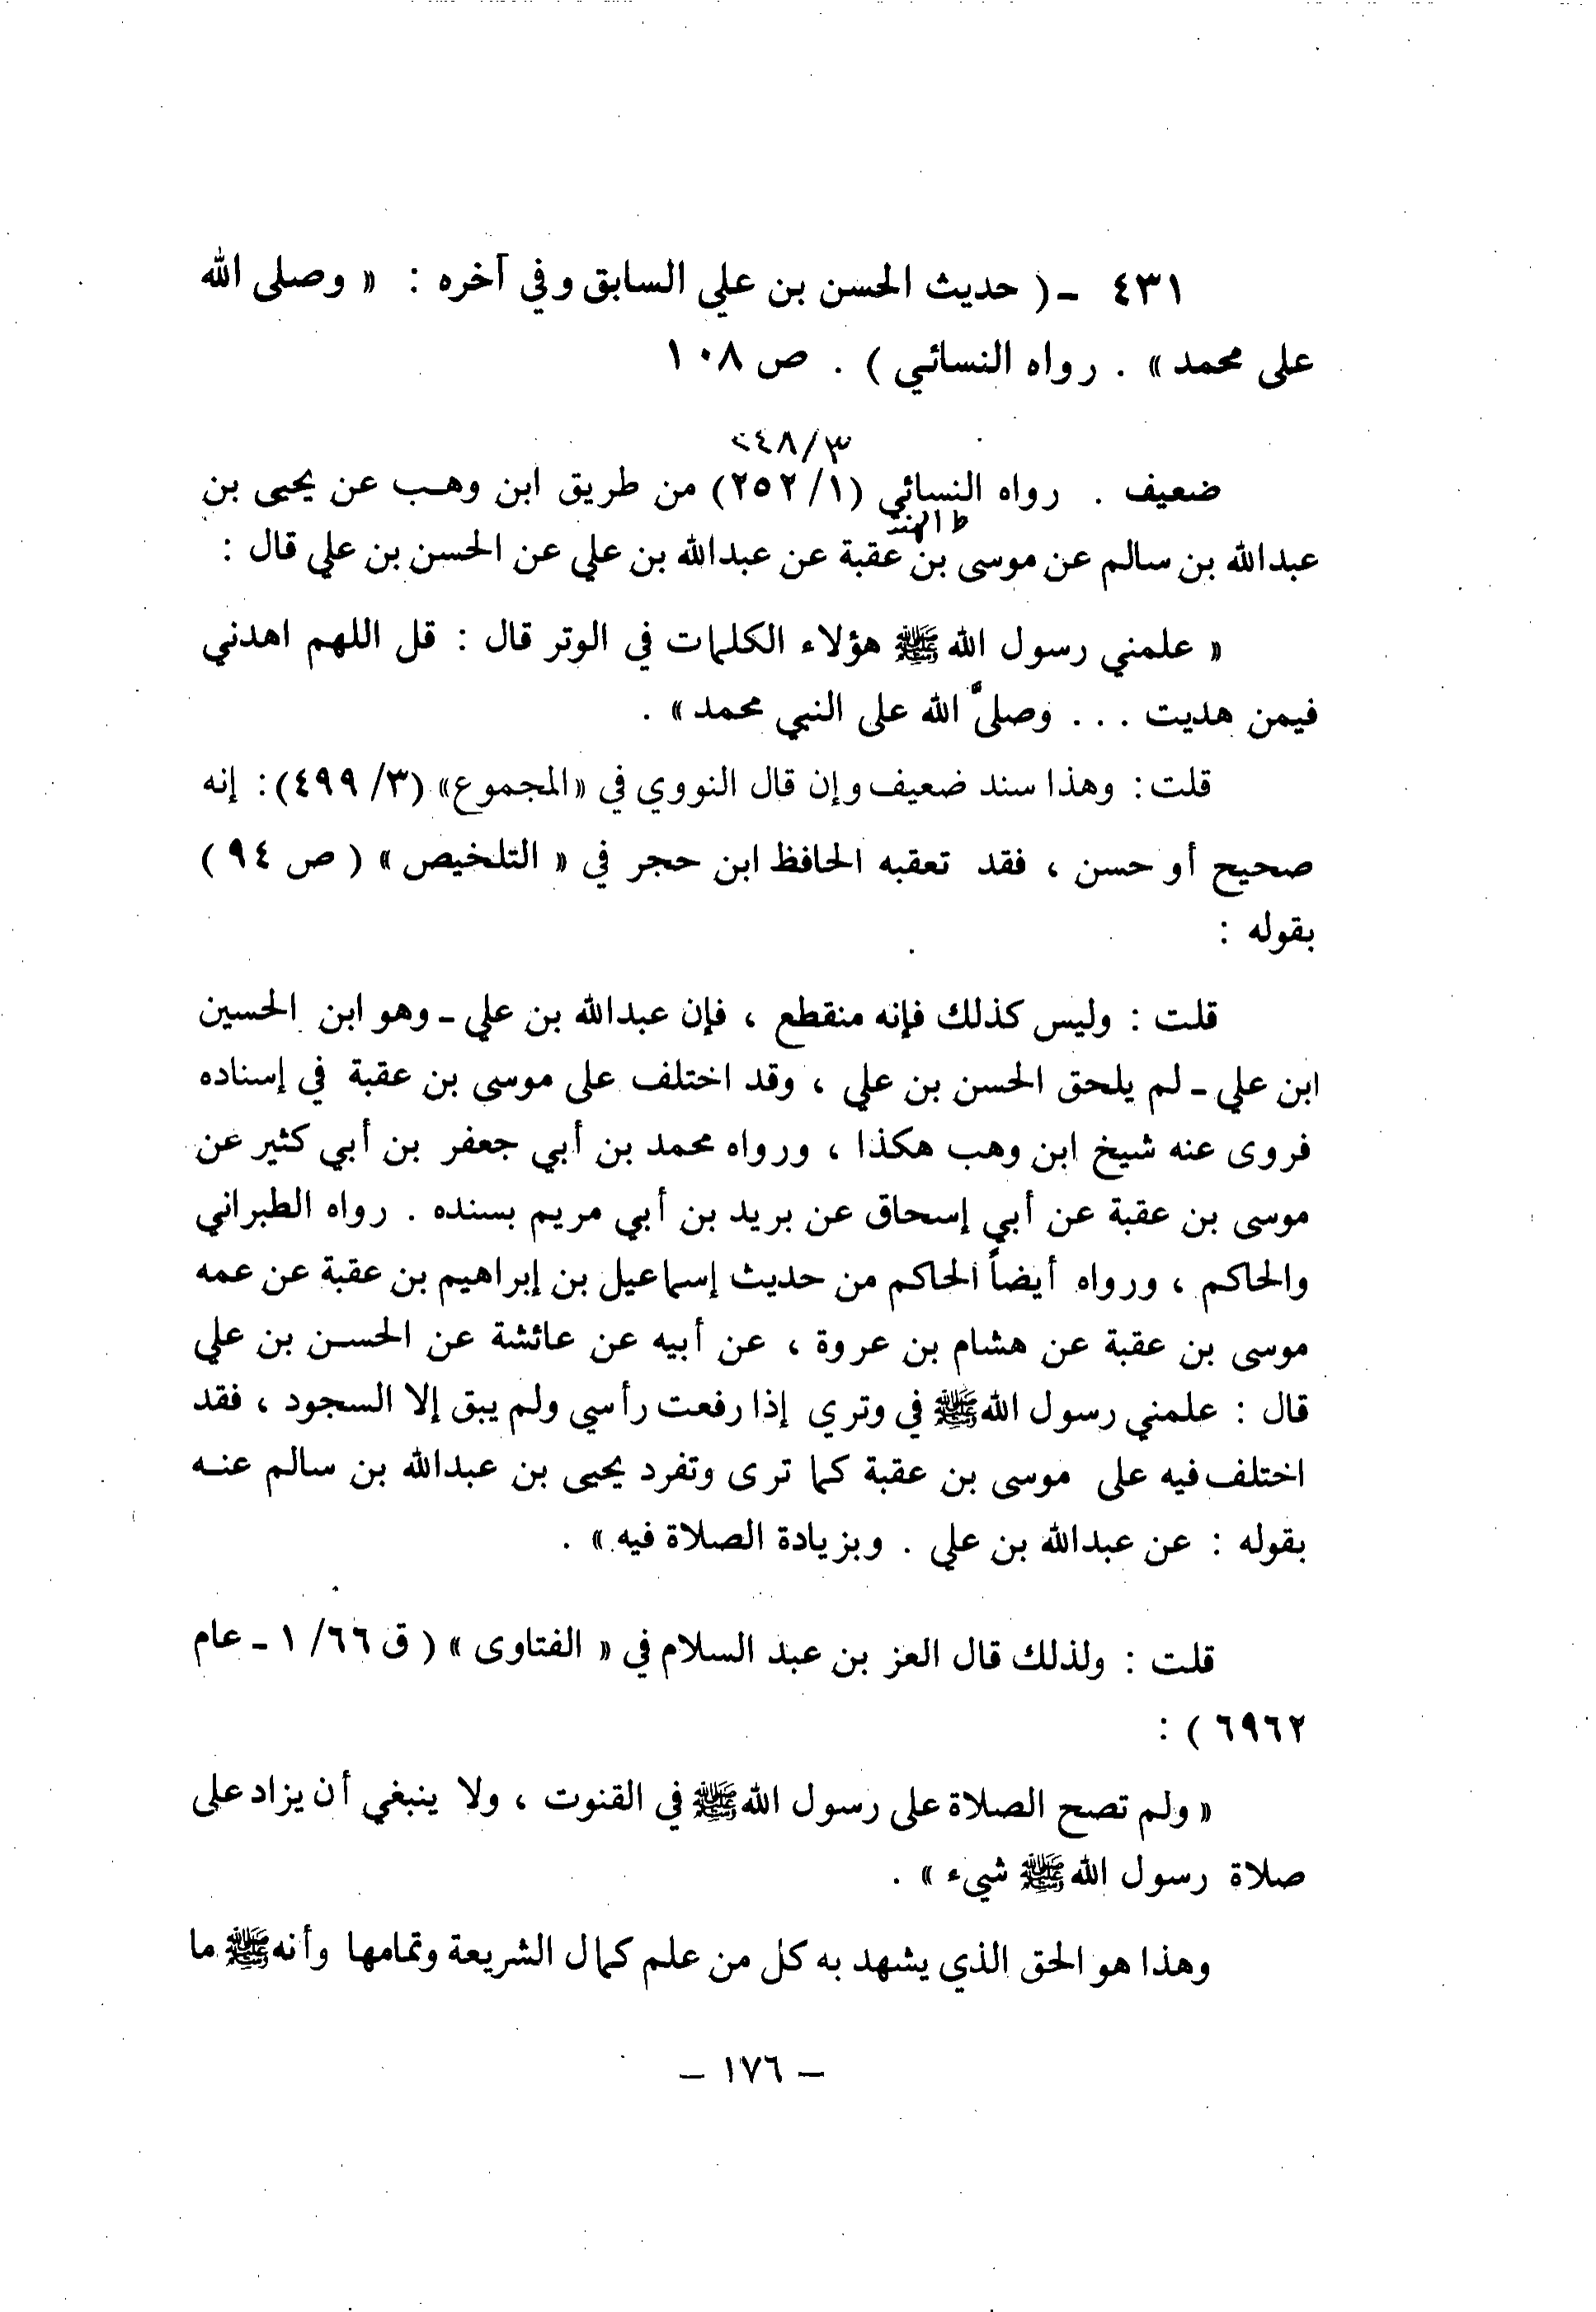 ٤٣١ - ( حديث الحسن بن علي السابق وفي آخره : « وصلى الله
على محمد » . رواه النسائي ) . ص ١٠٨
٣/٢٤٨
ضعيف . رواه النسائي (١/ ٢٥٢) من طريق ابن وهب عن يحيى بن
ط الهند
عبدالله بن سالم عن موسى بن عقبة عن عبدالله بن علي عن الحسن بن علي قال :
« علمني رسول الله ﷺ هؤلاء الكلمات في الوتر قال : قل اللهم اهدني
فيمن هديت . . . وصلىَّ الله على النبي محمد » .
قلت : وهذا سند ضعيف وإن قال النووي في «المجموع» (٣/ ٤٩٩) : إنه
صحيح أو حسن ، فقد تعقبه الحافظ ابن حجر في « التلخيص » ( ص ٩٤ )
بقوله :
قلت : وليس كذلك فإنه منقطع ، فإن عبدالله بن علي - وهو ابن الحسين
ابن علي - لم يلحق الحسن بن علي ، وقد اختلف على موسى بن عقبة في إسناده
فروى عنه شيخ ابن وهب هكذا ، ورواه محمد بن أبي جعفر بن أبي كثير عن
موسى بن عقبة عن أبي إسحاق عن بريد بن أبي مريم بسنده . رواه الطبراني
والحاكم ، ورواه أيضاً الحاكم من حديث إسماعيل بن إبراهيم بن عقبة عن عمه
موسى بن عقبة عن هشام بن عروة ، عن أبيه عن عائشة عن الحسن بن علي
قال : علمني رسول الله ﷺ في وتري إذا رفعت رأسي ولم يبق إلا السجود ، فقد
اختلف فيه على موسى بن عقبة كما ترى وتفرد يحيى بن عبدالله بن سالم عنه
بقوله : عن عبدالله بن علي . وبزيادة الصلاة فيه » .
قلت : ولذلك قال العز بن عبد السلام في « الفتاوى » ( ق ٦٦/ ١ - عام
٦٩٦٢ ) :
« ولم تصح الصلاة على رسول الله ﷺ في القنوت ، ولا ينبغي أن يزاد على
صلاة رسول الله ﷺ شيء » .
وهذا هو الحق الذي يشهد به كل من علم كمال الشريعة وتمامها وأنه ﷺ ما
- ١٧٦ -